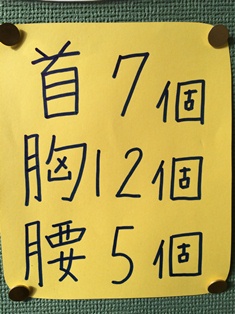 首 7個
胸12個
腰 5個